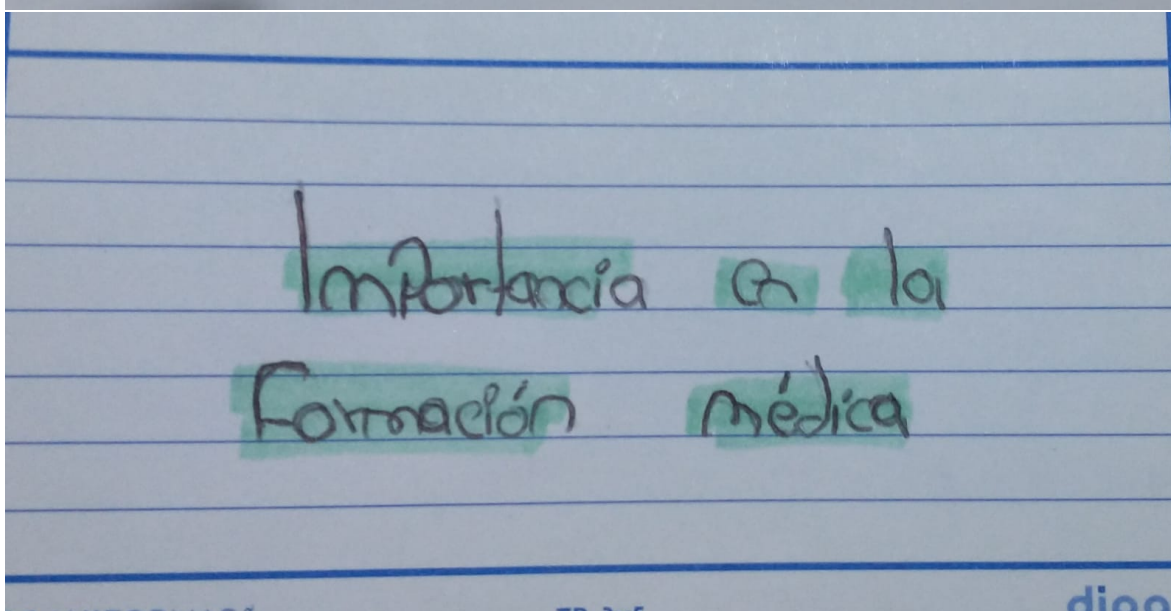 Importancia en la
Formación médica